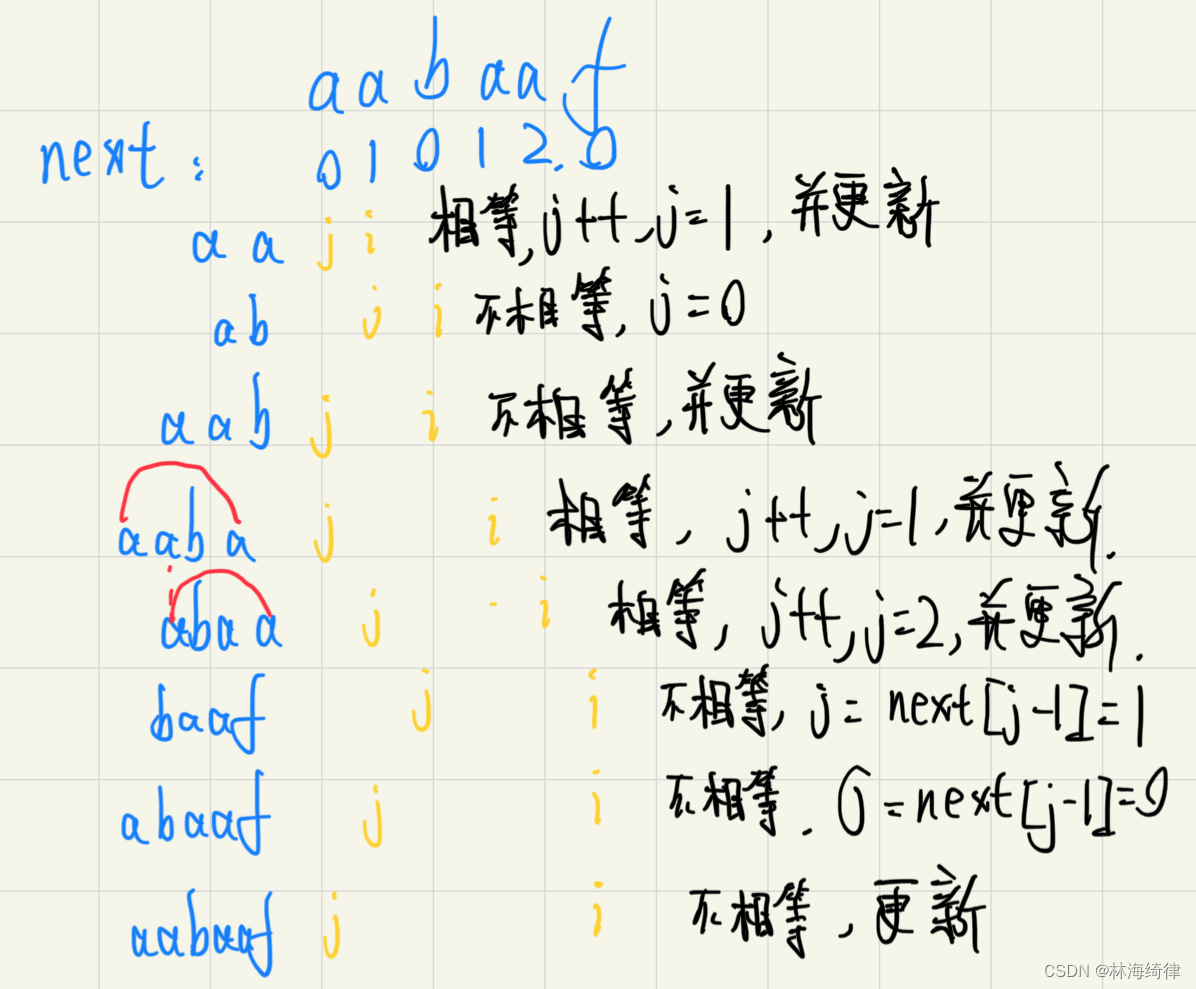 aabaaf
next: 0 1 0 1 2. 0
aa j i 相等,j++,j=1,并更新
ab j i 不相等,j=0
aab j i 不相等,并更新
aaba j i 相等,j++,j=1,并更新.
abaa j i 相等,j++,j=2,并更新.
baaf j i 不相等,j=next[j-1]=1
abaaf j i 不相等.j=next[j-1]=0
aabaaf j i 不相等,更新
CSDN @林海绮律